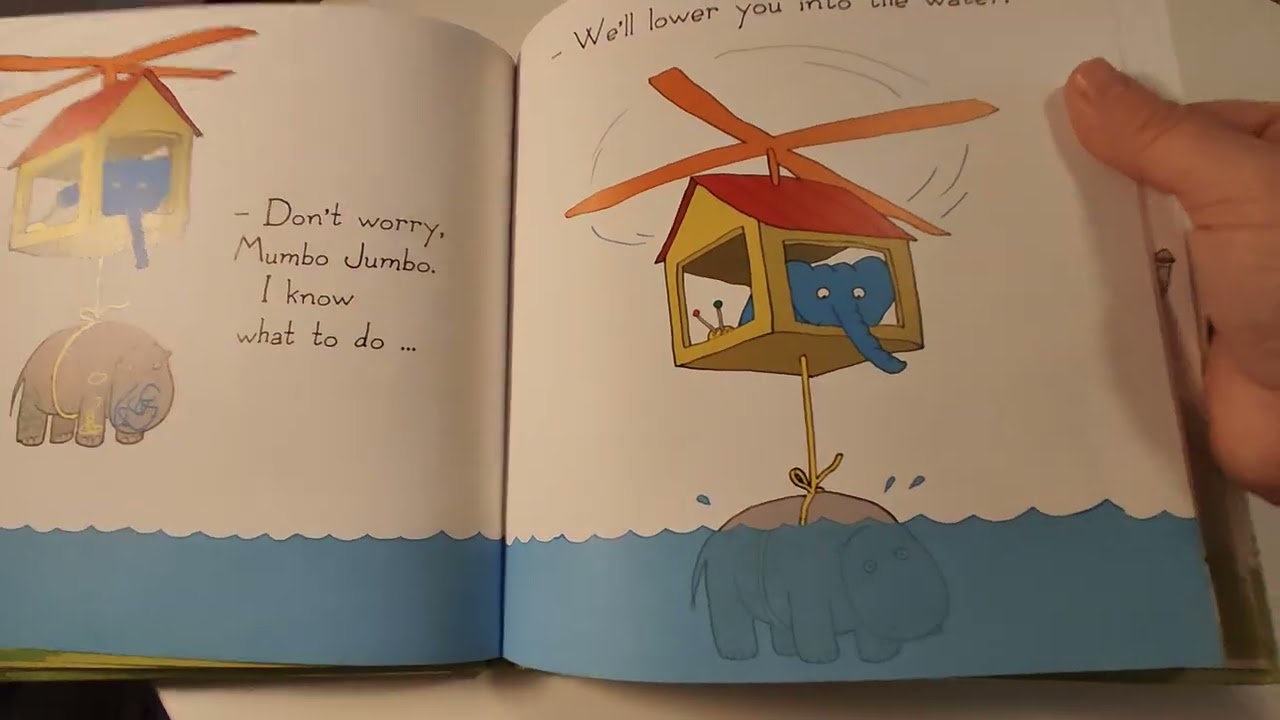 - Don't worry,
Mumbo Jumbo.
I know
what to do ...
- We'll lower you into the water.